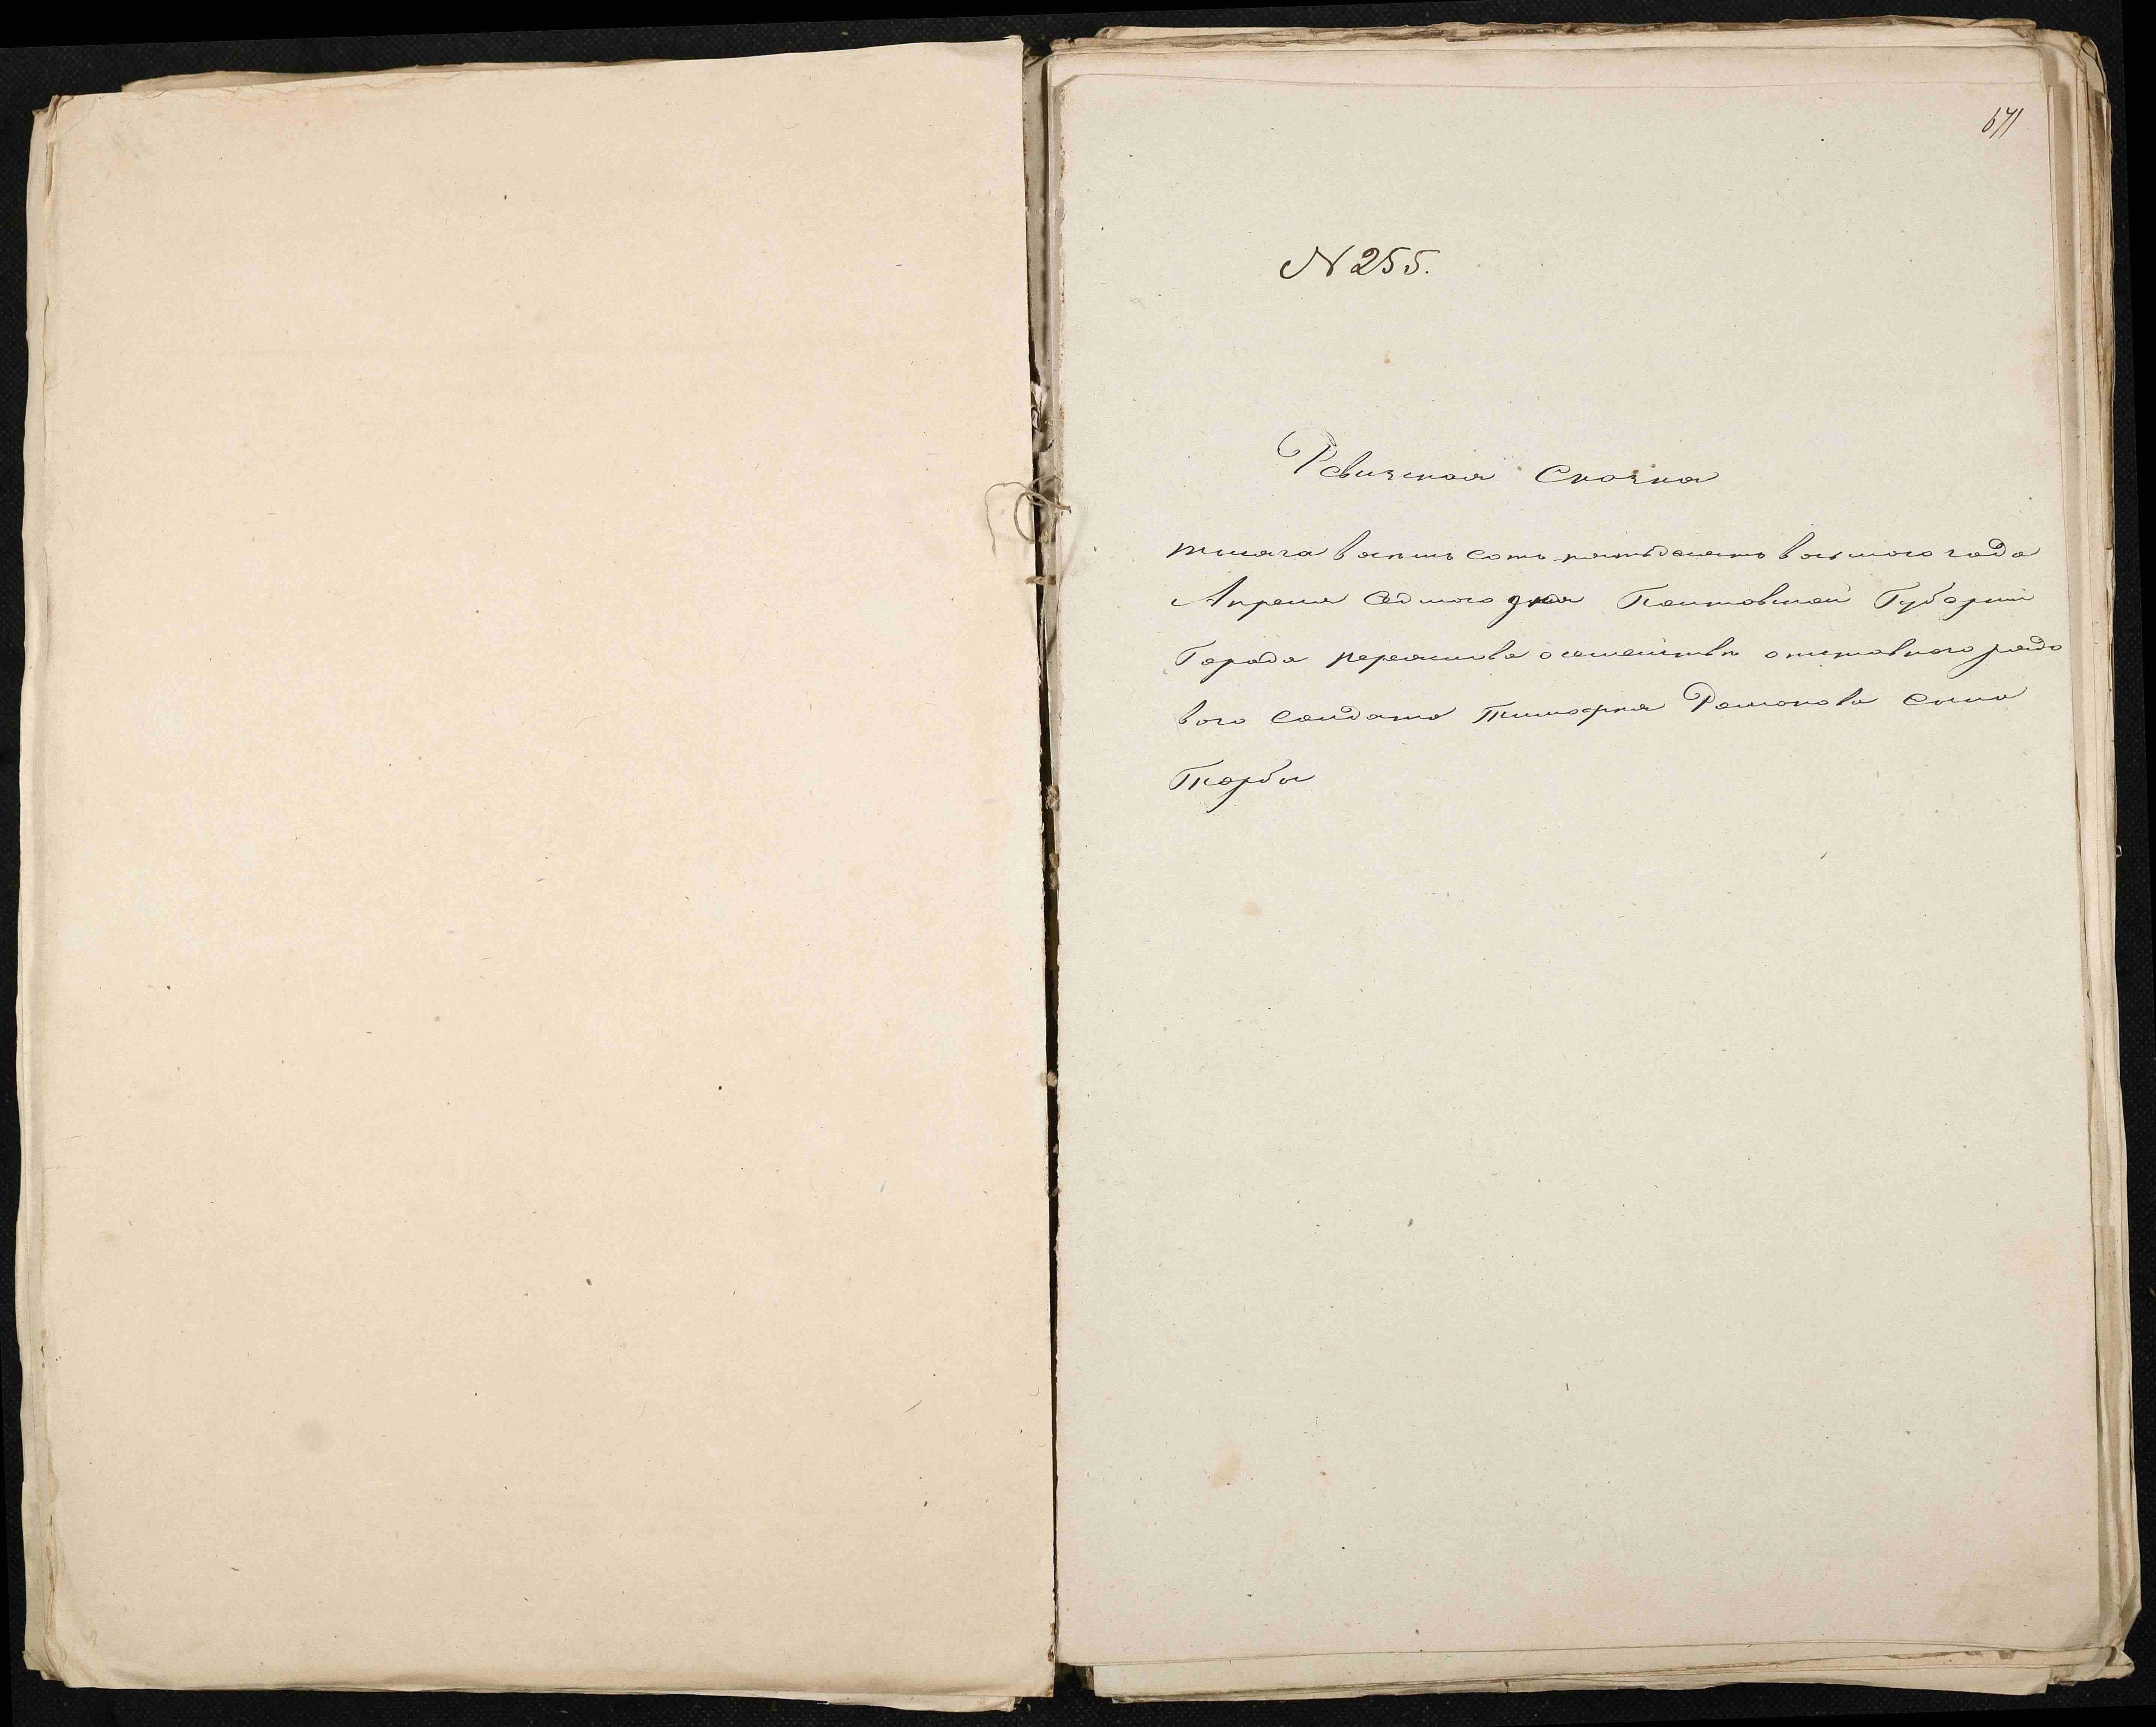 671
N 255.
Ревизская Сказка
тысяча восемь сотъ пятьдесятъ восмого года
Апреля Седмого дня Полтавской Губернии
Города переяслова осемействе отставного рядо
вого Солдата Тимофея Романова Сына
Щербы